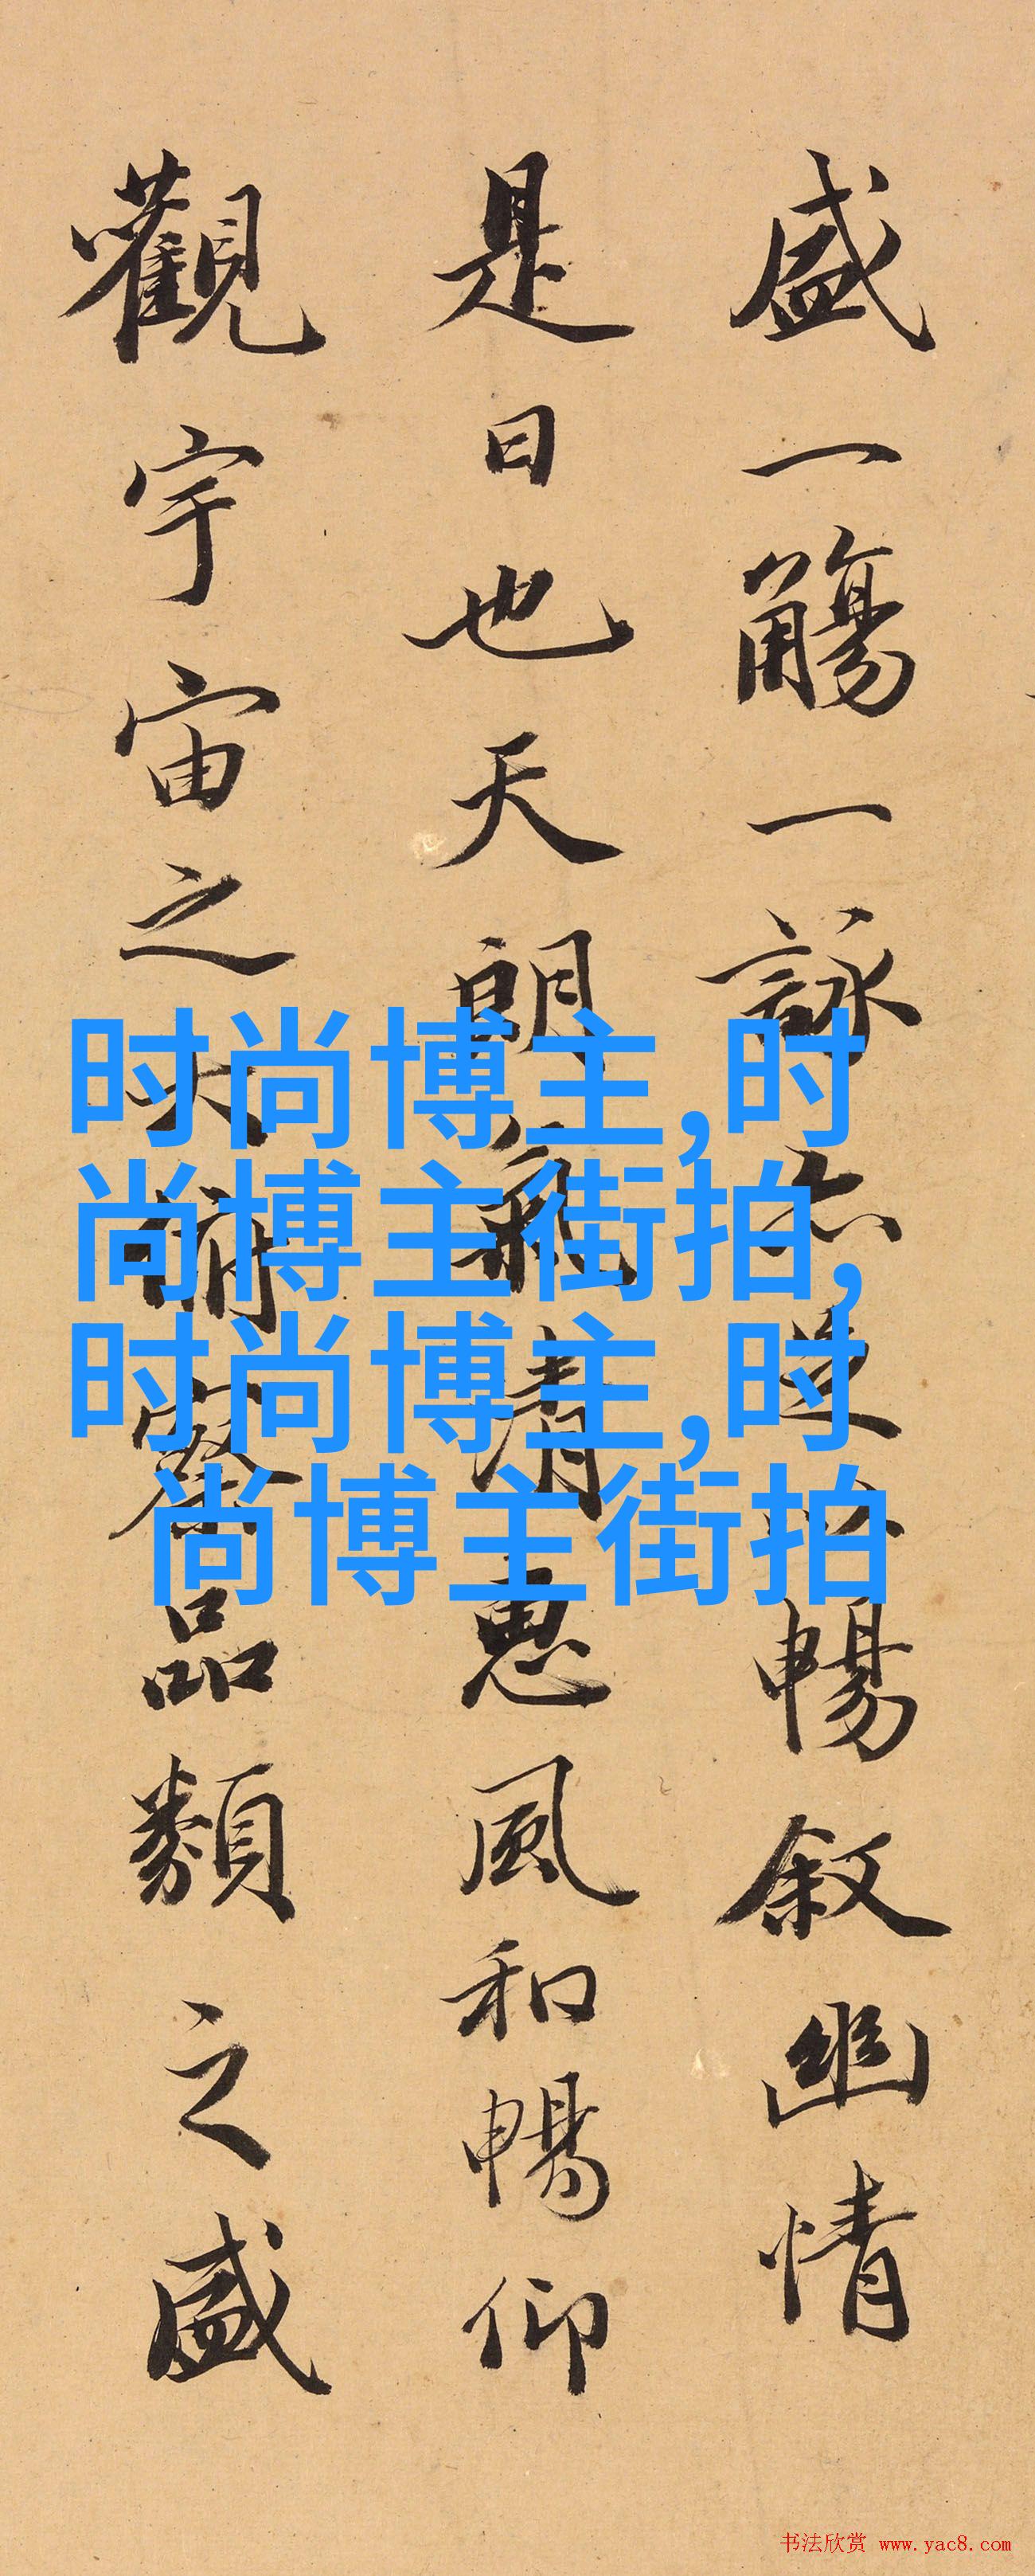 盛一觴一詠亦足以暢叙幽情
是日也天朗氣清惠風和暢仰
觀宇宙之大俯察品類之盛
时尚博主,时
尚博主街拍,
时尚博主,时
尚博主街拍
书法欣赏 www.yac8.com